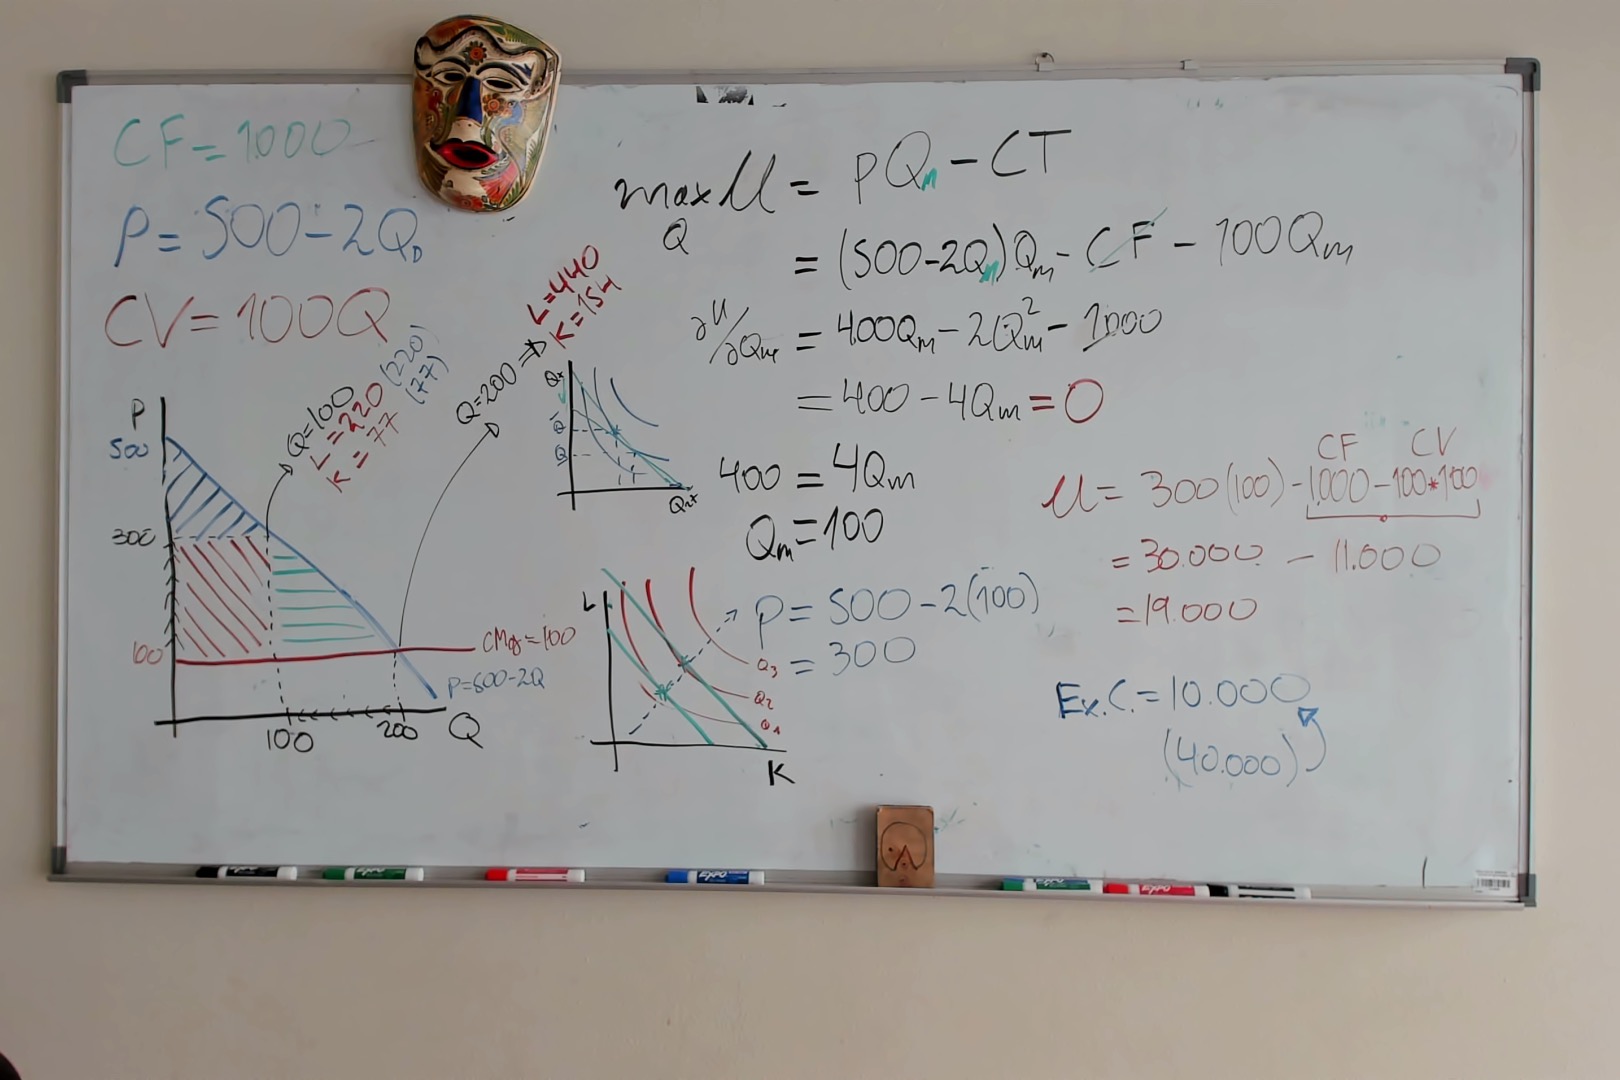 CF=1000
P=500-2Q_D
CV=100Q
max U = PQ_m - CT
Q
= (500-2Q_m)Q_m - CF - 100Q_m
∂U/∂Q_m = 400Q_m - 2Q_m^2 - 1000
= 400 - 4Q_m = 0
400 = 4Q_m
Q_m = 100
P = 500 - 2(100)
= 300
CF CV
U = 300(100) - 1.000 - 100*100
= 30.000 - 11.000
= 19.000
Ex.C. = 10.000
(40.000)
Q=100
L=220 (220)
K=77 (77)
Q=200 ⇒ L=440
K=154
P
500
300
100
CMg=100
P=500-2Q
100
200
Q
L
K
Q3
Q2
Q1
EXPO
EXPO